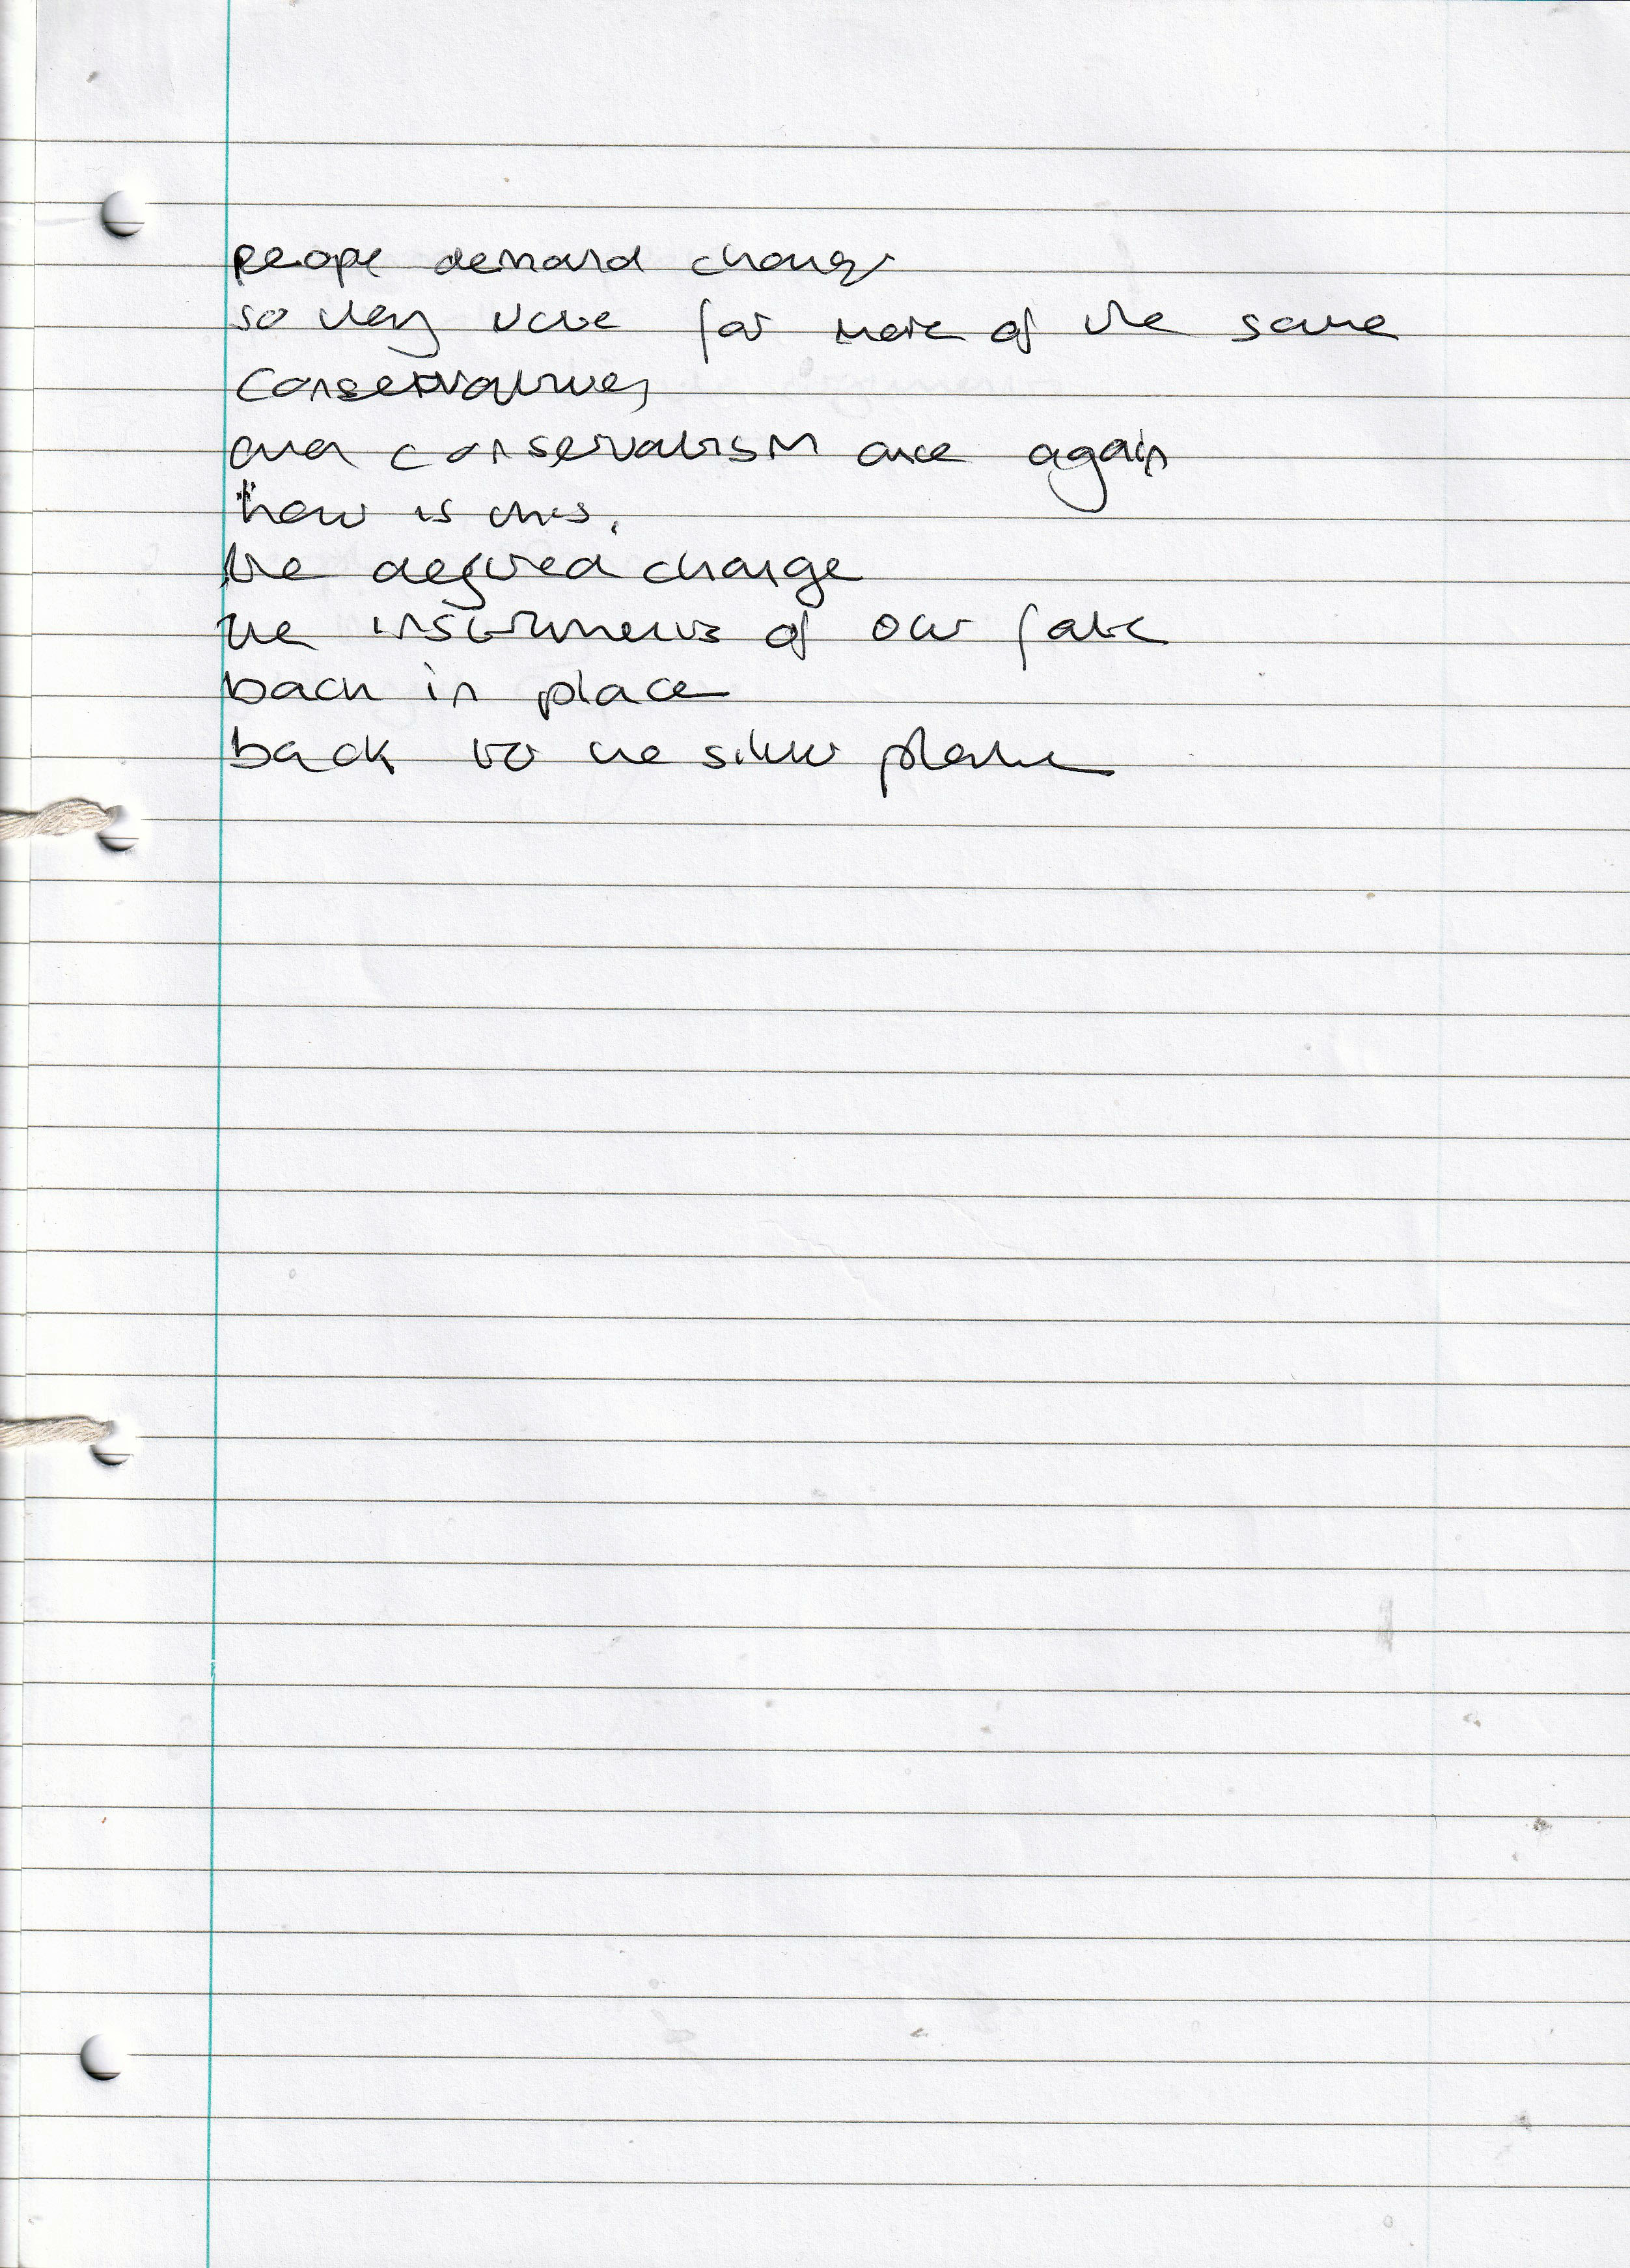 people demand change
so they vote for more of the same
Conservatives
and conservatism once again
how is this,
the desired change
the instruments of our fate
back in place
back to the silver platter